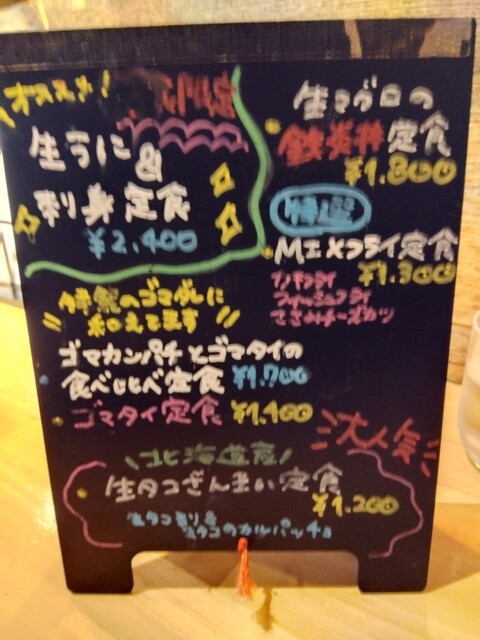 オススメ!
限定
生うに
&
刺身定食
¥2,400
生マグロの
鉄火丼定食
¥1,800
特選
MIXフライ定食
¥1,300
カキフライ
フィッシュフライ
ささみチーズカツ
特製のゴマダレに
和えてます
ゴマカンパチとゴマタイの
食べ比べ定食 ¥1,700
ゴマタイ定食 ¥1,400
大人気
北海道産
生タコざんまい定食
¥1,200
生タコ刺し&
生タコのカルパッチョ